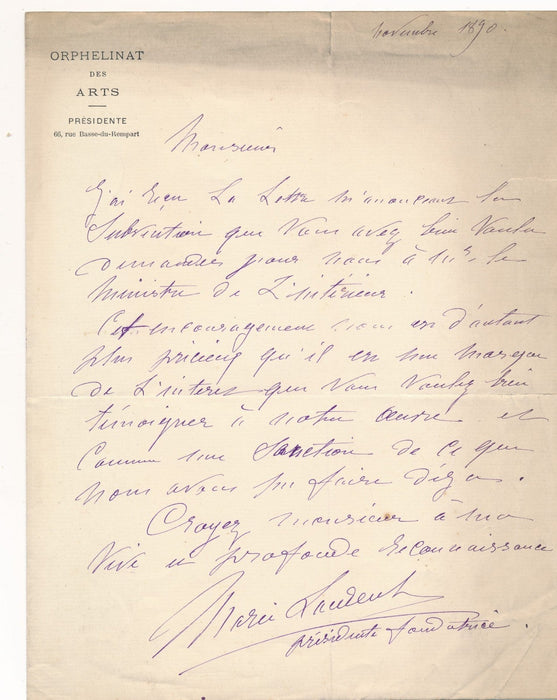 novembre 1890.
ORPHELINAT
DES
ARTS
PRÉSIDENTE
66, rue Basse-du-Rempart
Monsieur
J'ai reçu La Lettre m'annonçant la
Subvention que vous avez bien voulu
demander pour nous à Mr le
Ministre de L'intérieur.
Cet encouragement nous est d'autant
plus précieux qu'il est une marque
de L'interet que vous voulez bien
témoigner à notre œuvre et
comme une Sanction de ce que
nous avons pu faire déja.
Croyez monsieur à ma
vive et profonde reconnaissance
Marie Laurent
présidente fondatrice.